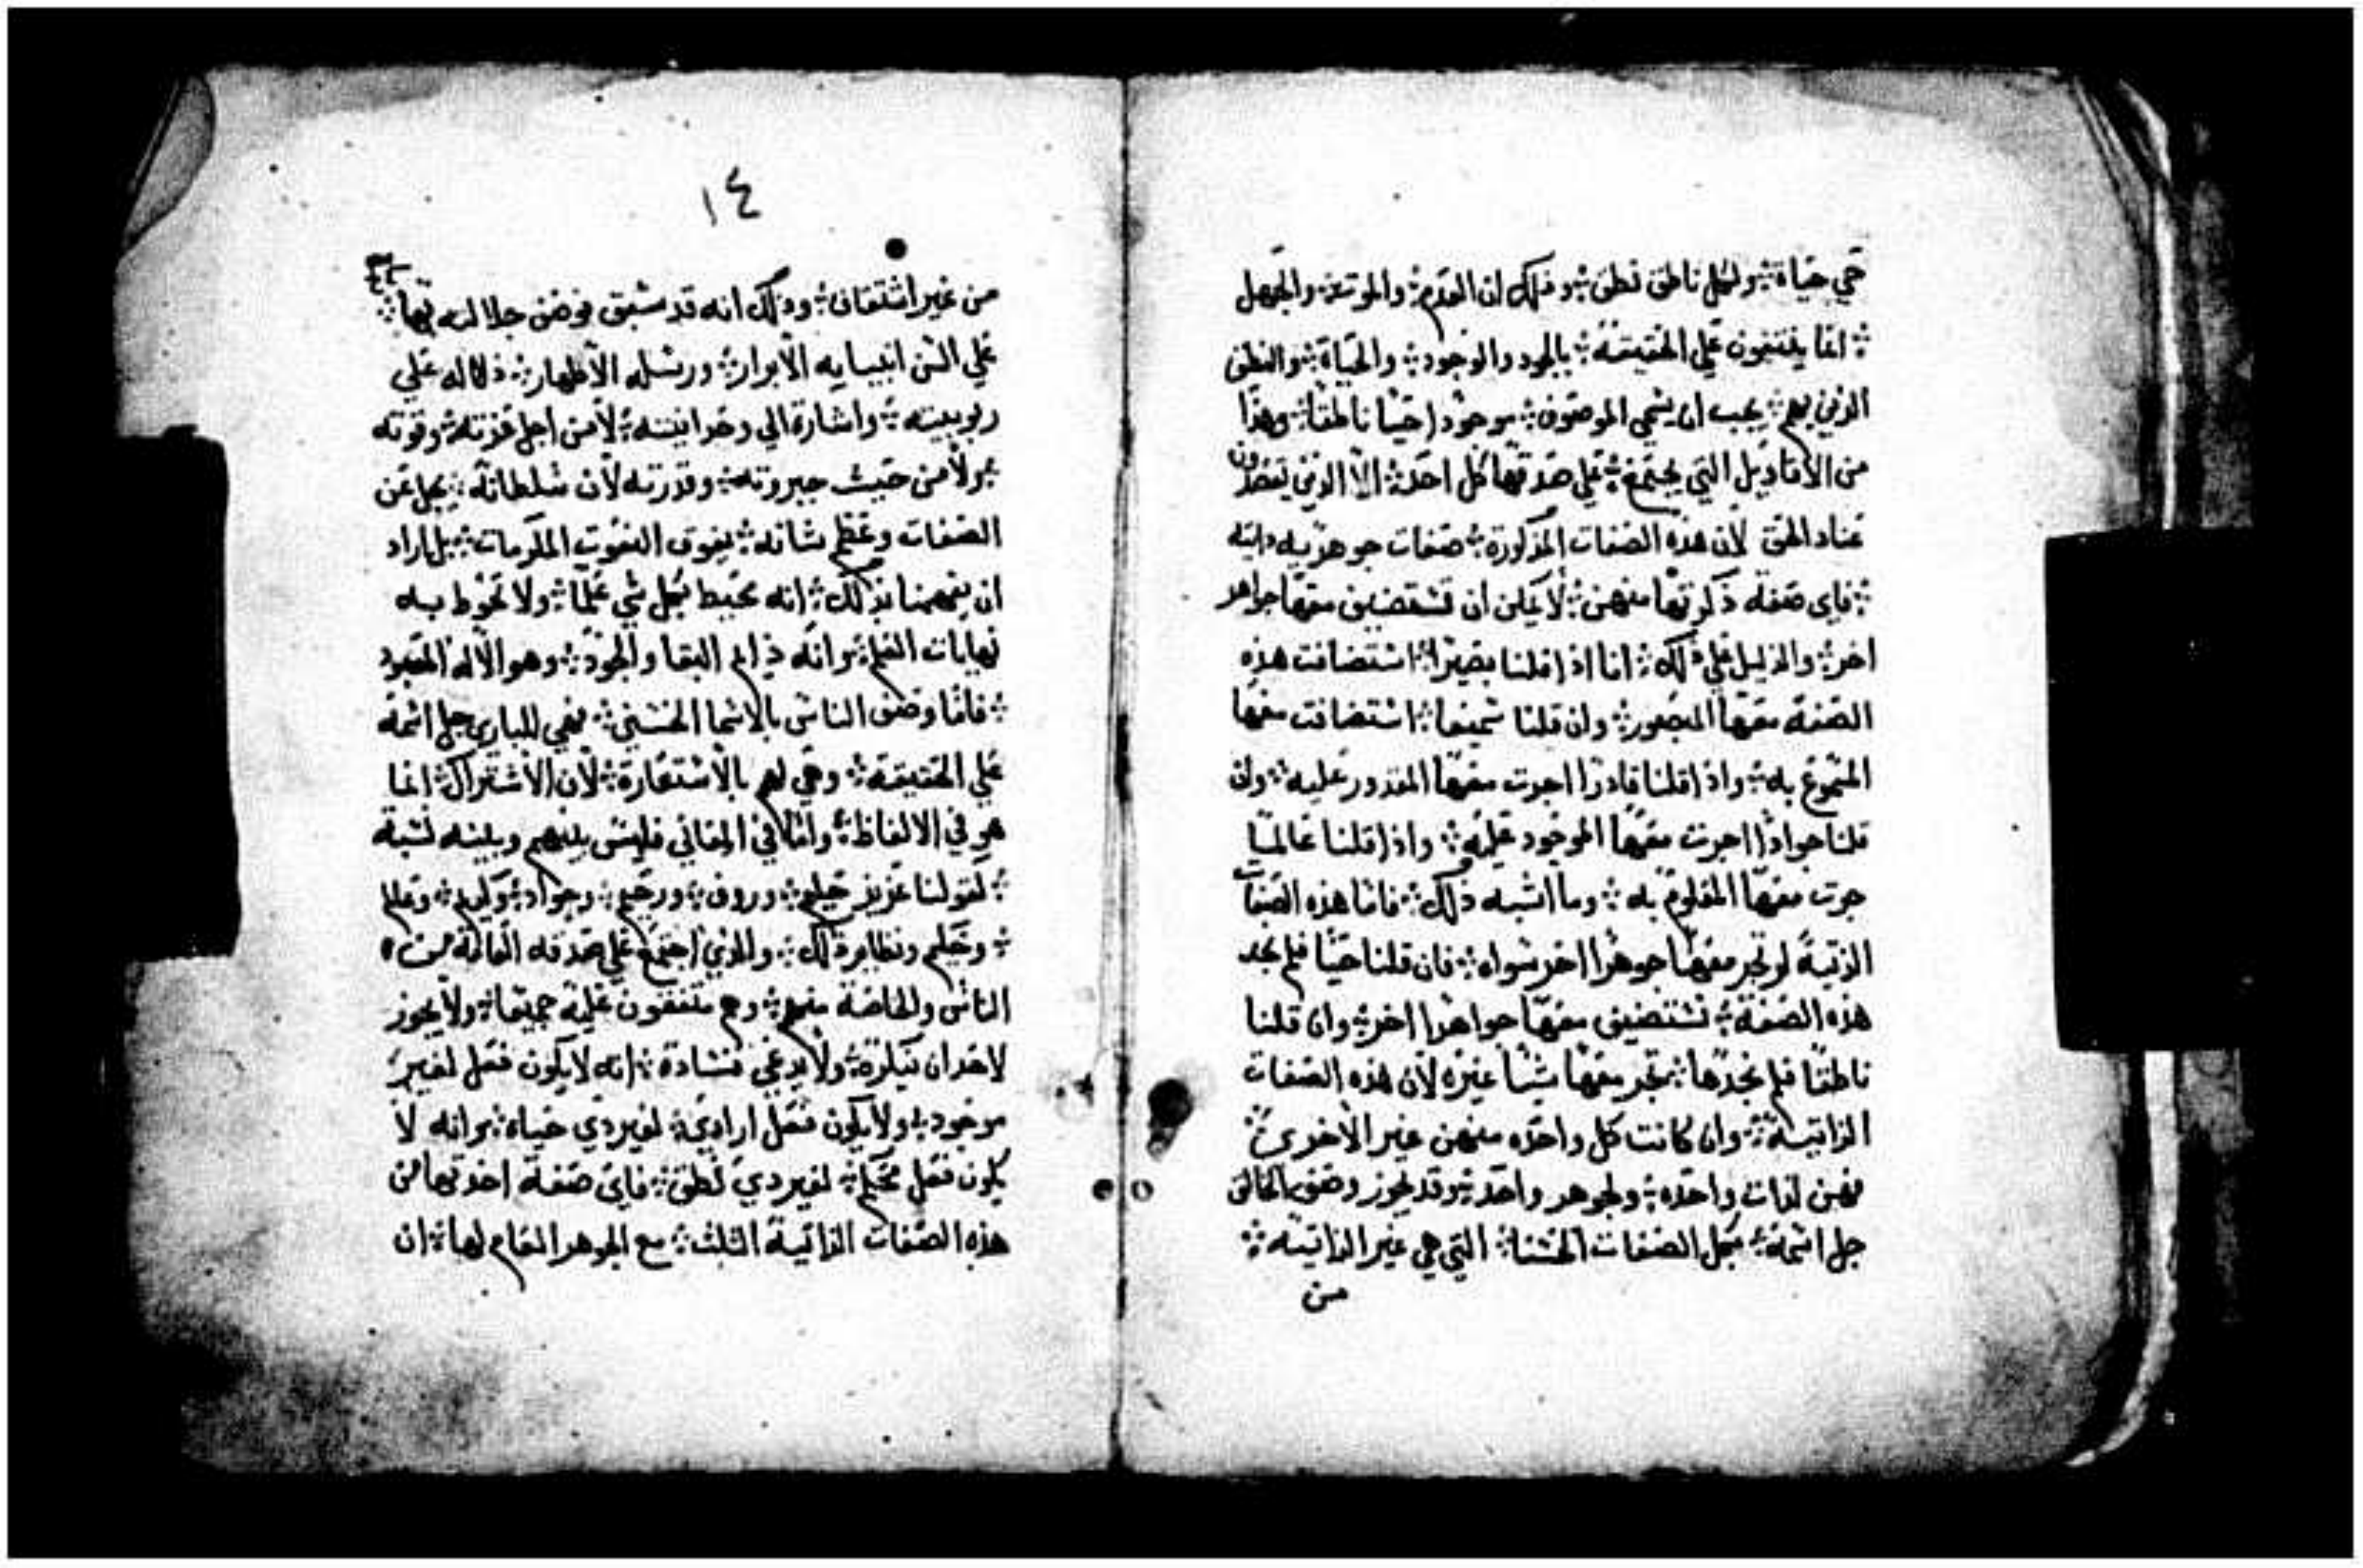 حي حياة ۞ ولكل ناطق نطق ۞ وذلك ان العدم ۞ والموت ۞ والجهل
۞ انما ينتفون علي الحقيقة ۞ بالجود والوجود ۞ والحياة ۞ والنطق
الذين بهم ۞ يجب ان يسمي الموصوف ۞ موجودا حيا ناطقا ۞ وهذا
من الاقاويل التي يجتمع ۞ علي صدقها كل احد ۞ الا الذين يقصدون
عناد الحق لان هذه الصفات المذكورة ۞ صفات جوهريه ذاتيه
۞ فاي صفه ذكرتها منهن ۞ لا يمكن ان تستضيف معها جواهر
اخر ۞ والدليل علي ذلك ۞ انا اذا قلنا بصيرا ۞ استضافت هذه
الصفة معها المبصور ۞ وان قلنا سميعا ۞ استضافت معها
المسموع به ۞ واذا قلنا قادرا اجرت معها المقدور عليه ۞ وان
قلنا جوادا اجرت معها الموجود عليه ۞ واذا قلنا عالما
جرت معها المعلوم به ۞ وما اشبه ذلك ۞ فاما هذه الصفات
الذتية لم تجر معها جوهرا اخر سواه ۞ فان قلنا حيا فلم نجد
هذه الصفة ۞ تستضيف معها جواهرا اخر ۞ وان قلنا
ناطقا فلم نجدها ۞ تجر معها شيا غيره لان هذه الصفات
الذاتية ۞ وان كانت كل واحده منهن غير الاخري ۞
فهن لذات واحده ۞ ولجوهر واحد ۞ وقد يجوز وصف الخالق
جل اسمه ۞ بكل الصفات الحسنا ۞ التي هي غير الذاتيه ۞
من
١٤
من غير اشتقاق ۞ وذلك انه قد سبق فوصف جلالته بها ۞
علي السن انبيايه الابرار ۞ ورسله الاطهار ۞ دلاله علي
ربوبيته ۞ واشارة الي وحدانيته ۞ لا من اجل عزته ۞ وقوته
۞ ولا من حيث جبروته ۞ وقدرته لان سلطانه ۞ يجل عن
الصفات وعظم شانه ۞ يفوق النعوت المكرمات ۞ بل اراد
ان يفهمنا بذلك ۞ انه محيط بكل شي علما ۞ ولا تحوط به
نهايات العلم ۞ وانه دايم البقا والجود ۞ وهو الاله المعبود
۞ فاما وصف الناس بالاسما الحسني ۞ فهي للباري جل اسمه
علي الحقيقة ۞ وهي لهم بالاستعارة ۞ لان الاشتراك ۞ انما
هو في الالفاظ ۞ واما في المعاني فليس بينهم وبينه نسبة
۞ كقولنا عزيز حليم ۞ وروف ۞ ورحيم ۞ وجواد ۞ وكريم ۞ وعالم
۞ وحكيم ونظاير ذلك ۞ والذي اجتمع علي صدقه العامة من
الناس والخاصة منهم ۞ وهم متفقون عليه جميعا ۞ ولا يجوز
لاحد ان ينكره ۞ ولا يدعي فساده ۞ انه لا يكون فعل لغير
موجود ۞ ولا يكون فعل ارادي ۞ لغير دي حياه ۞ وانه لا
يكون فعل محكم ۞ لغير دي نطق ۞ فاي صفة اخدتها من
هذه الصفات الذاتية الثلث ۞ مع الجوهر العام لها ۞ ان